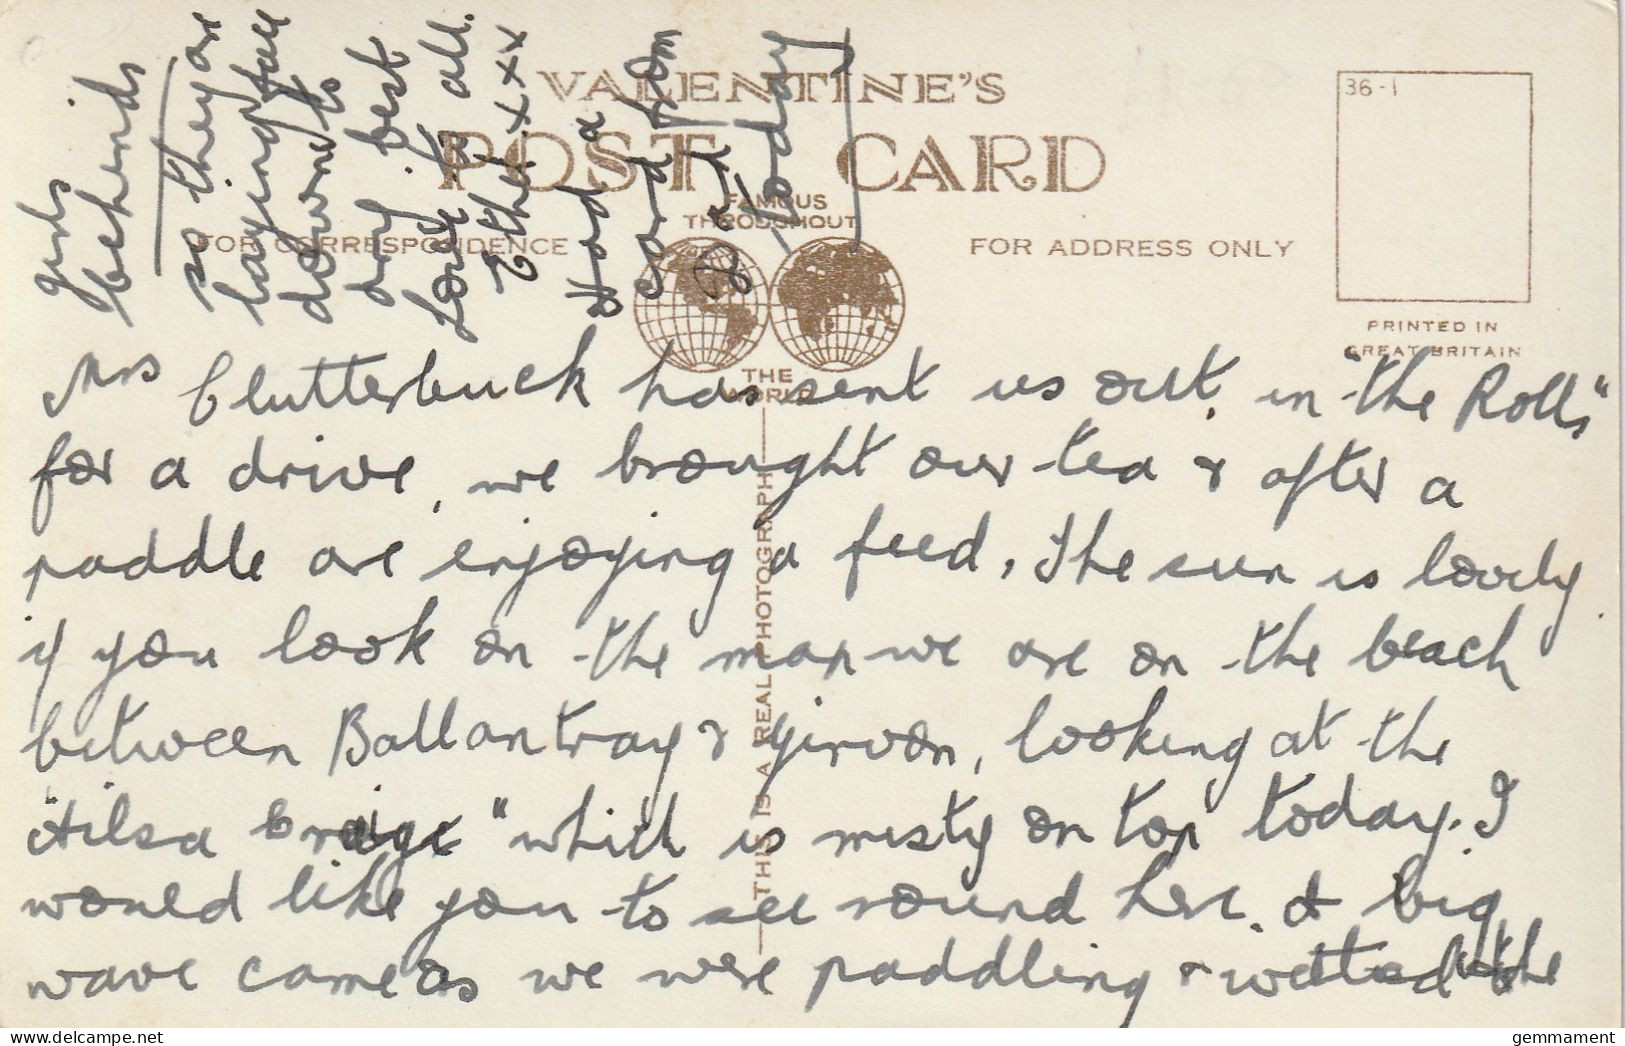 VALENTINE'S
POST CARD
FAMOUS
THROUGHOUT
THE
WORLD
FOR CORRESPONDENCE
FOR ADDRESS ONLY
36-1
PRINTED IN
GREAT BRITAIN
THIS IS A REAL PHOTOGRAPH
Mrs Clutterbuck has sent us out in "the Rolls"
for a drive, we brought our tea & after a
paddle are enjoying a feed. The sun is lovely
if you look on the map we are on the beach
between Ballantray & Girvan, looking at the
"Ailsa Craige" which is misty on top today. I
would like you to see round here. A big
wave came as we were paddling & wetted the
girls
behinds
so they are
laying face
down to
dry best
Love to all.
Ethel xxxx
Had a
card from
Dad today
gemmament